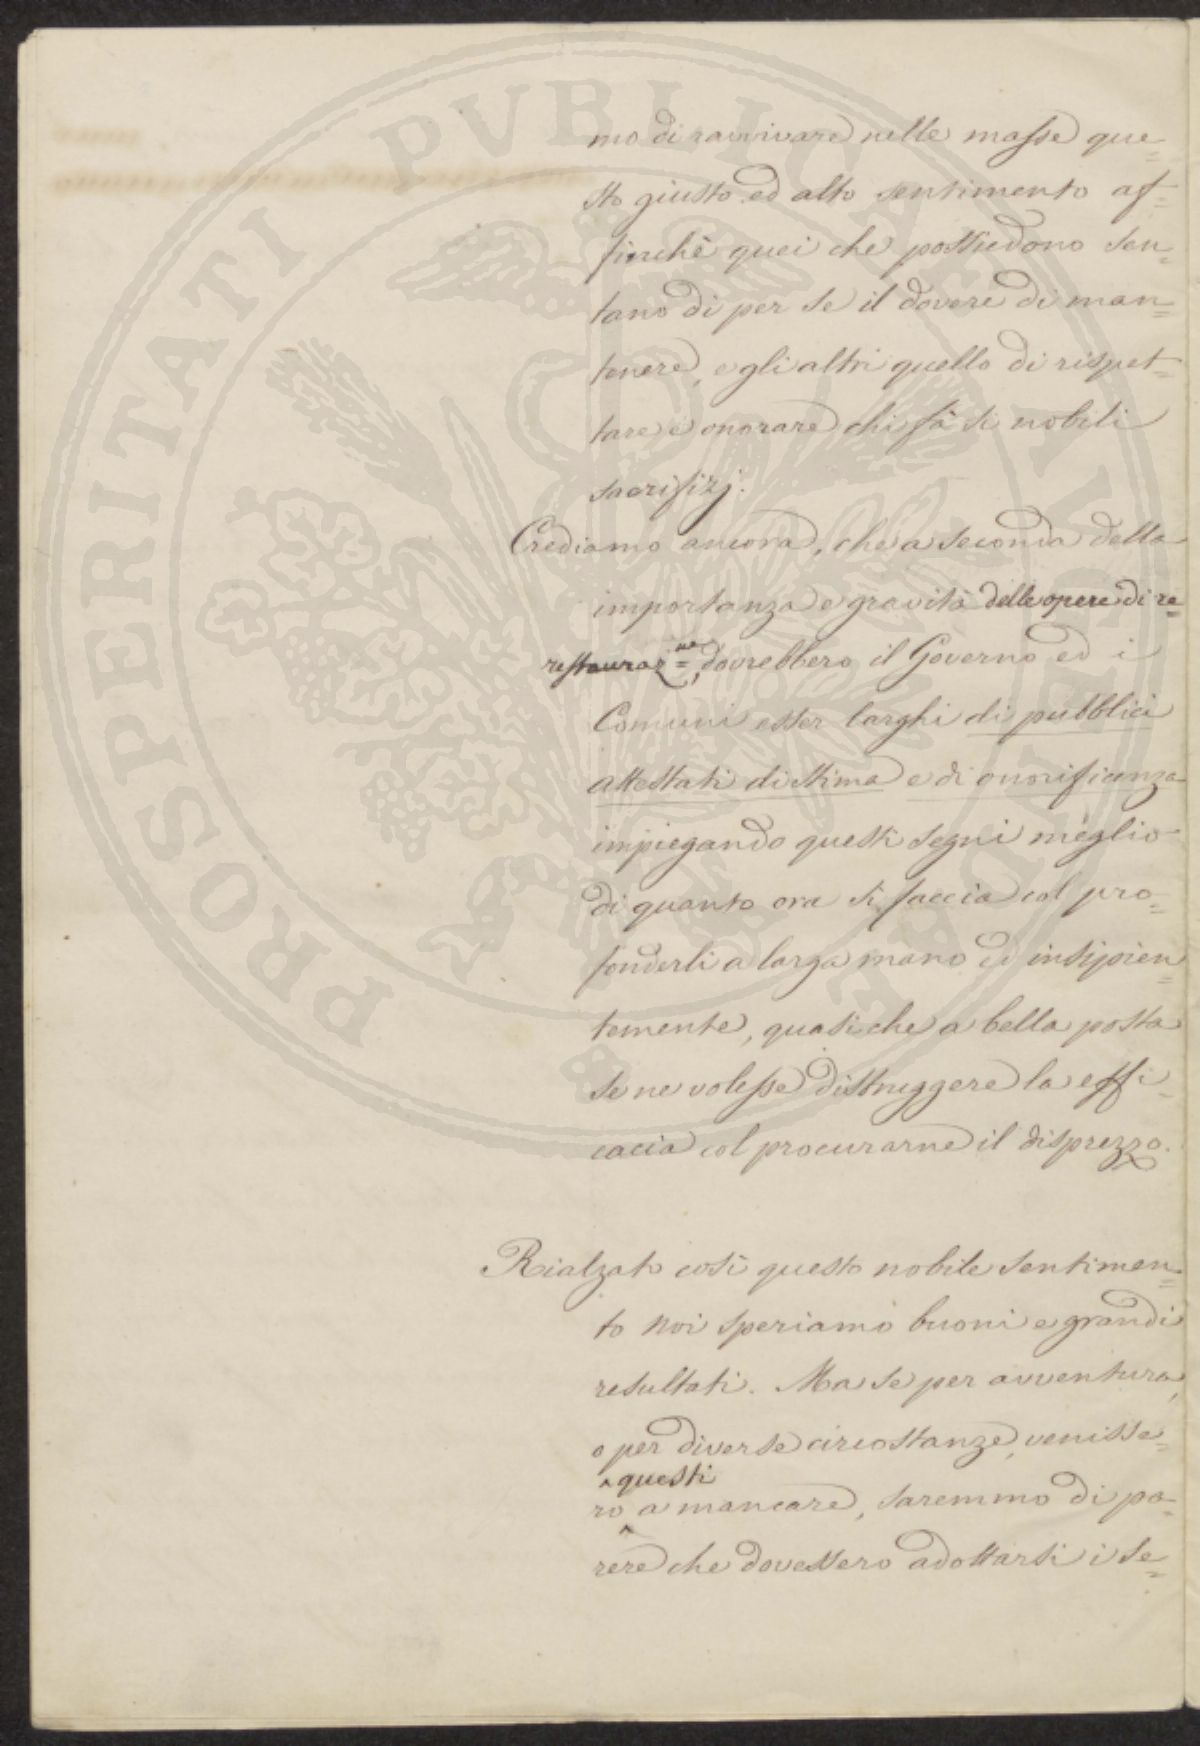 PROSPERITATI PVBLICAE AVGENDAE
mo di ravvivare nelle masse que=
sto giusto ed alto sentimento af=
finchè quei che possiedono sen=
tano di per se il dovere di man=
tenere, e gli altri quello di rispet=
tare e onorare chi fà si nobili
sacrifizj.
Crediamo ancora, che a seconda della
importanza e gravità delle opere di re=
restauraz.ne=, dovrebbero il Governo ed i
Comuni esser larghi di pubblici
attestati di stima e di onorificenza
impiegando questi segni meglio
di quanto ora si faccia col pro=
fonderli a larga mano ed insipien=
temente, quasi che a bella posta
se ne volesse distruggere la effi=
cacia col procurarne il disprezzo.
Rialzato così questo nobile sentimen=
to noi speriamo buoni e grandi
resultati. Ma se per avventura,
o per diverse circostanze, venisse=
^ questi
ro a mancare, saremmo di pa=
rere che dovessero adottarsi i se=